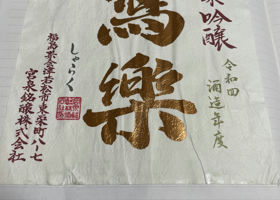 吟醸
令和四
酒造年度
寫樂
しゃらく
福島県会津若松市東栄町八ー七
宮泉銘醸株式会社